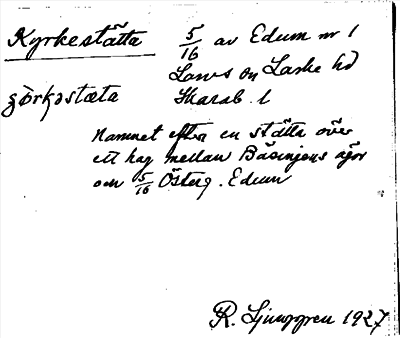 Kyrkestätta 5/16 av Edum nr 1
Laske hd
Skarab. l
Namnet efter en stätta över
ett hag mellan Bäsinjens ägor
och 5/16 Österg. Edum
R. Ljunggren 1927